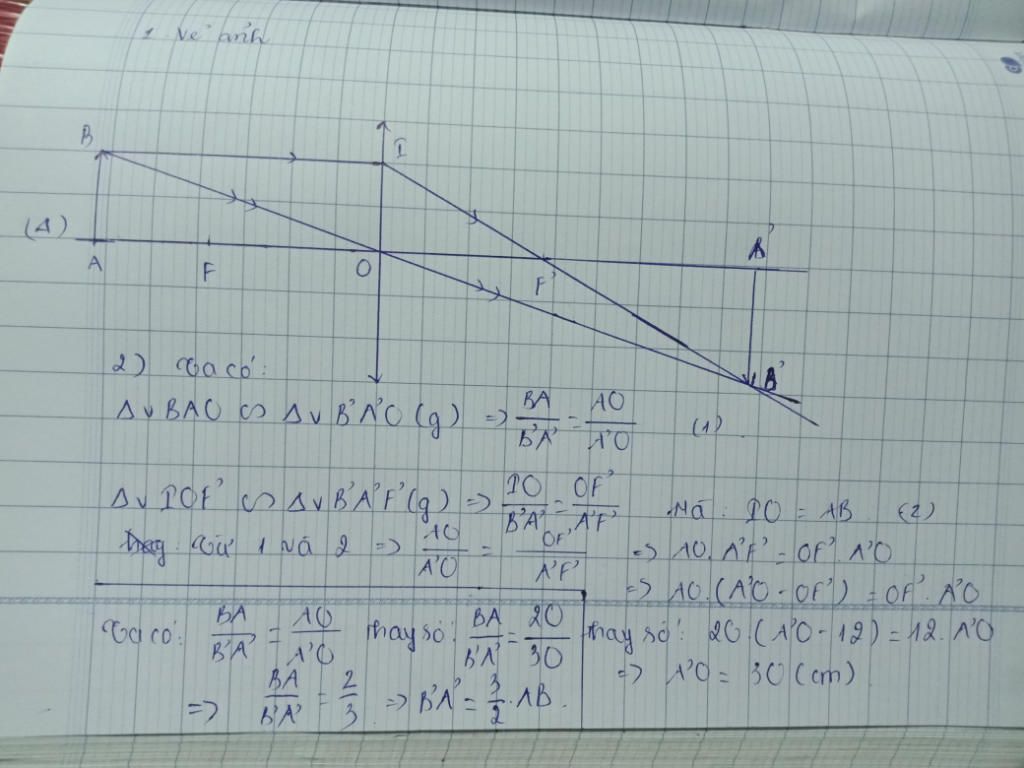 1 vẽ ảnh
B
I
(Δ)
A
F
O
F'
A'
B'
2) Ta có:
Δv BAO ∽ Δv B'A'O (g) => BA/B'A' = AO/A'O (1)
Δv IOF' ∽ Δv B'A'F' (g) => IO/B'A' = OF'/A'F' Mà: IO = AB (2)
Từ 1 và 2 => AO/A'O = OF'/A'F' => AO. A'F' = OF'. A'O
=> AO.(A'O - OF') = OF'. A'O
Ta có: BA/B'A' = AO/A'O thay số: BA/B'A' = 20/30
=> BA/B'A' = 2/3 => B'A' = 3/2. AB.
thay số: 20.(A'O - 12) = 12. A'O
=> A'O = 30 (cm)